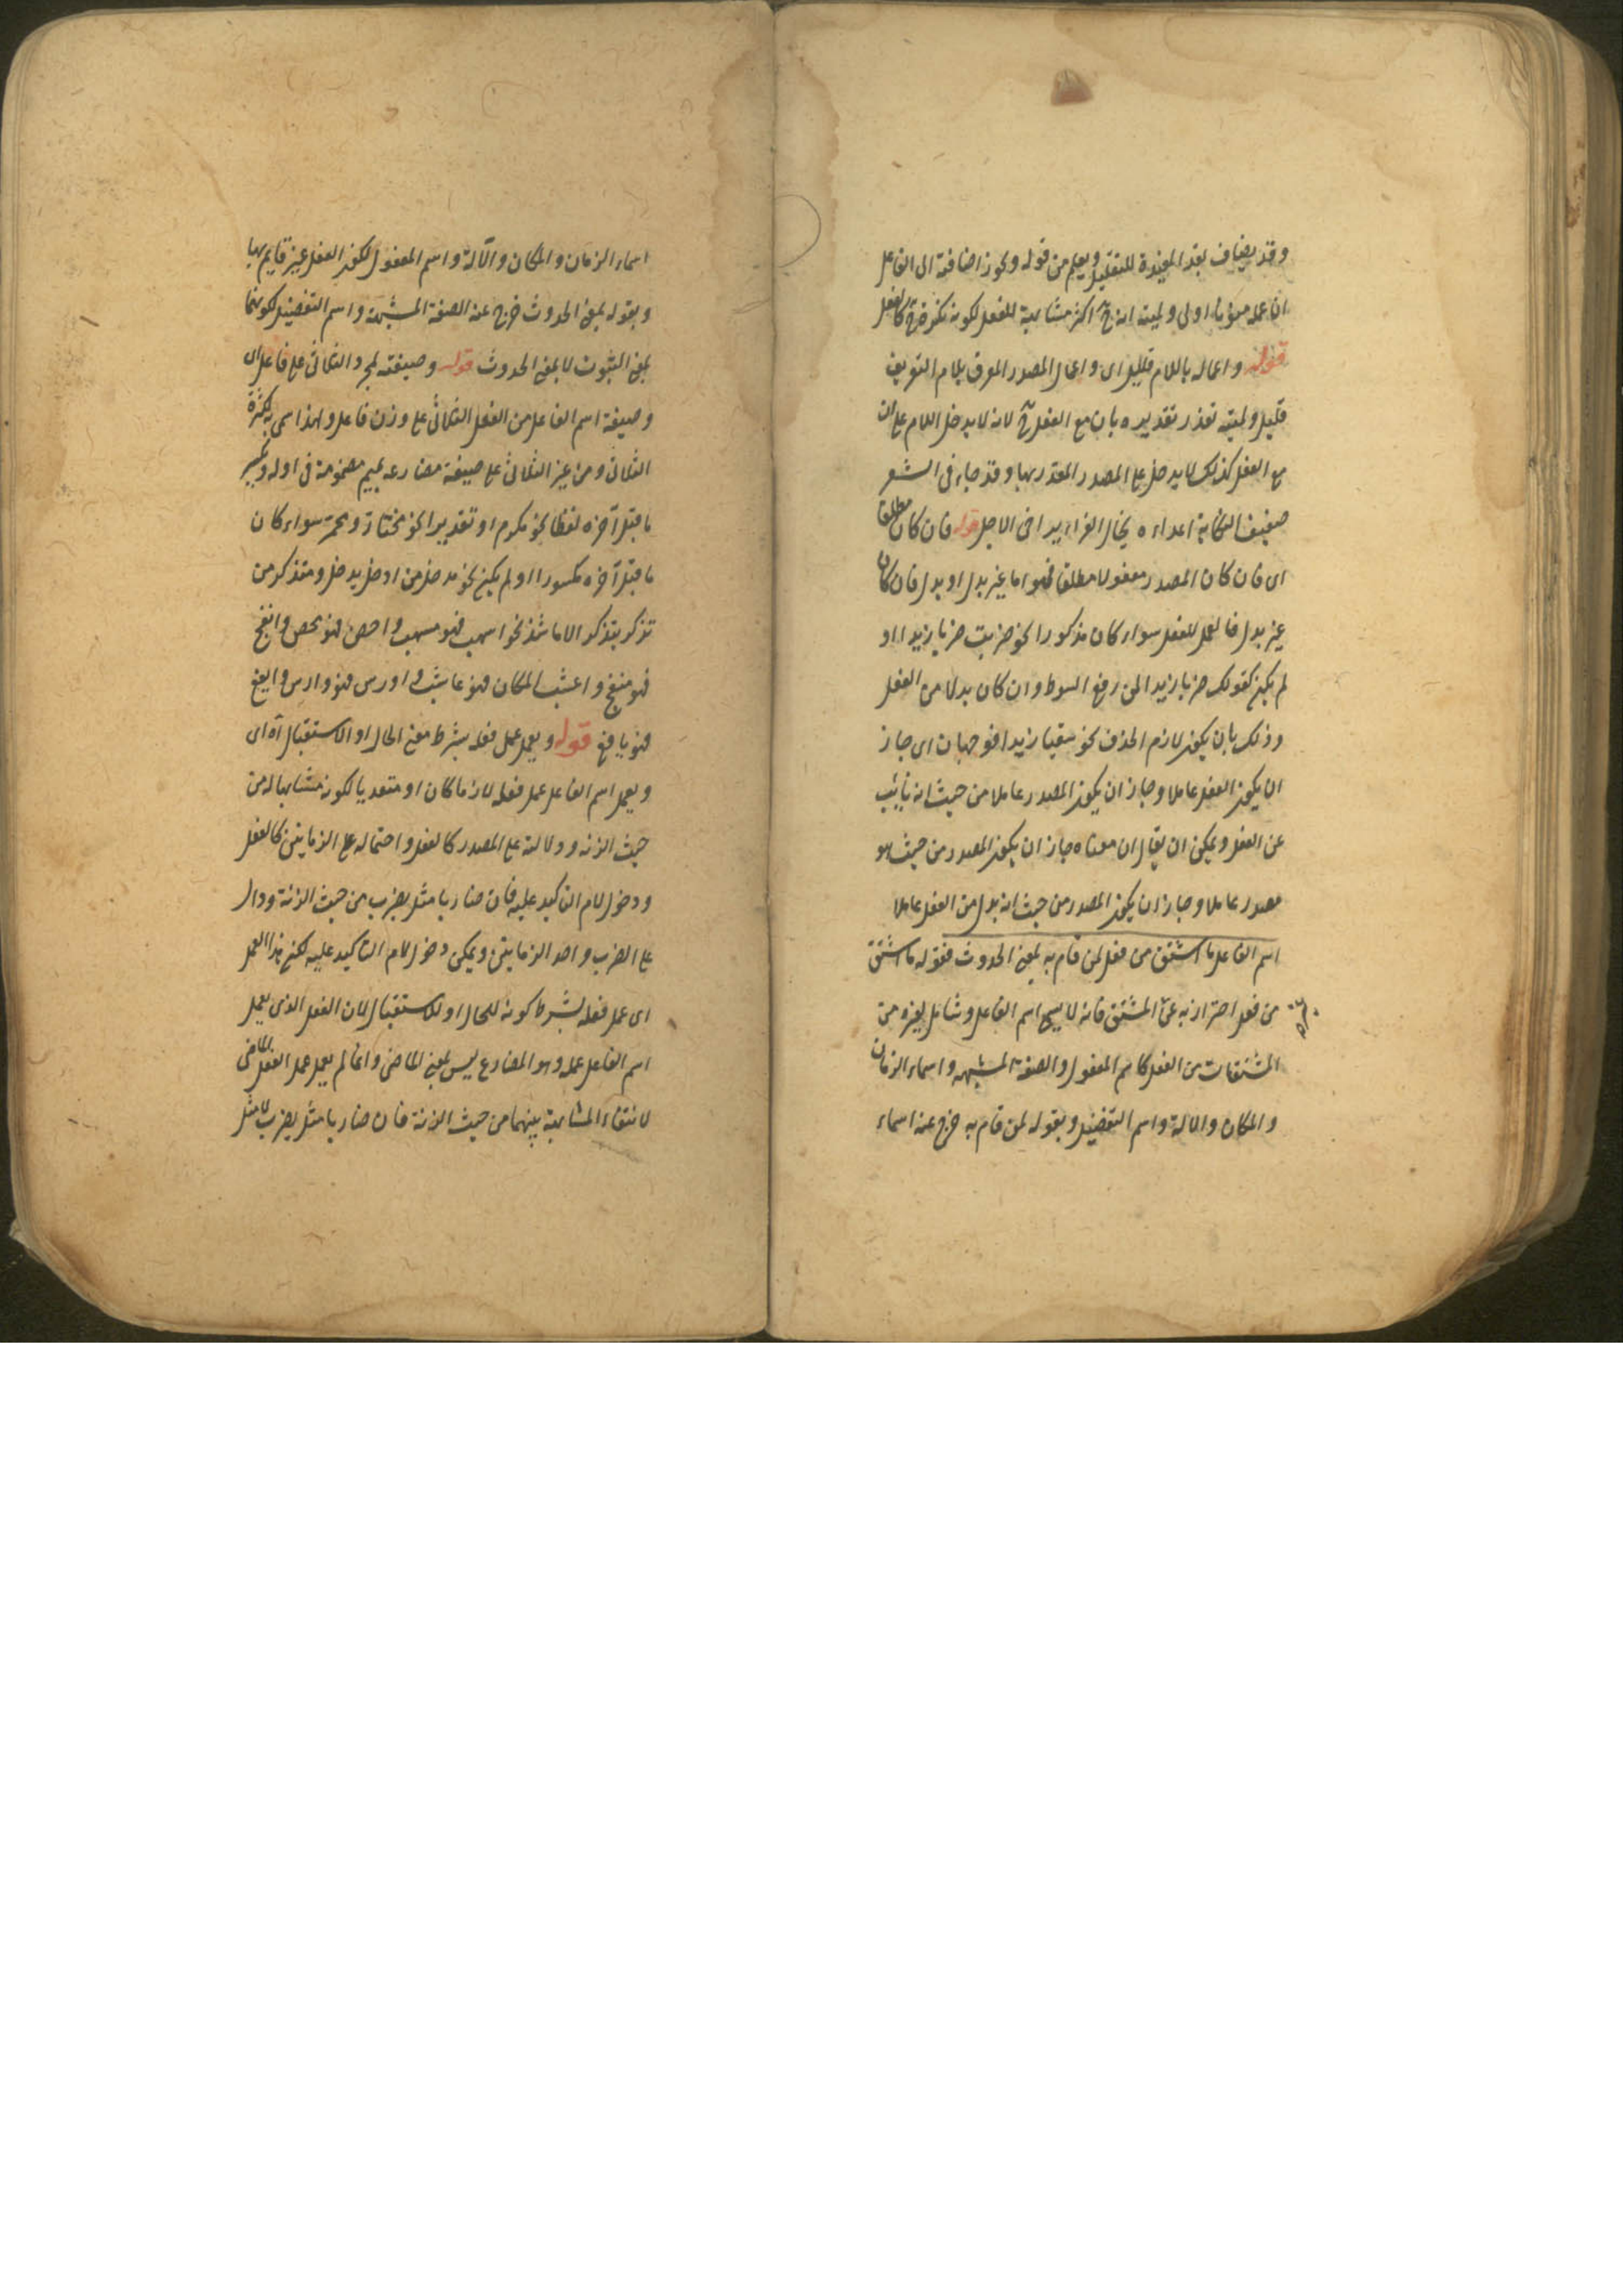 وقد يضاف بقد المفيدة للتقليل ويعلم من قوله ويجوز اضافته الى الفاعل
ان عمله منونا اولى ولميته انه ح اكثر مشابهة للفعل لكونه نكرة ح كالفعل
قوله واعماله باللام قليل اى واعمال المصدر المعرف بلام التعريف
قليل ولميته تعذر تقديره بان مع الفعل ح لانه لا يدخل اللام على ان
مع الفعل كذلك لا يدخل على المصدر المقدر بها وقد جاء فى الشعر
ضعيف النكاية اعداءه يخال الفرار يراخى الاجل قوله فان كان مطلقا
اى فان كان المصدر مفعولا مطلقا فهو اما غير بدل او بدل فان كان
غير بدل فالعمل للفعل سواء كان مذكورا نحو ضربت ضربا زيدا او
لم يكن كقولك ضربا زيدا لمن رفع السوط وان كان بدلا من الفعل
وذلك بان يكون لازم الحذف نحو سقيا زيدا فوجهان اى جاز
ان يكون الفعل عاملا وجاز ان يكون المصدر عاملا من حيث انه نايب
عن الفعل ويمكن ان يقال ان معناه جاز ان يكون المصدر من حيث هو
مصدر عاملا وجاز ان يكون المصدر من حيث انه بدل من الفعل عاملا
اسم الفاعل ما اشتق من فعل لمن قام به بمعنى الحدوث فقوله ما اشتق
من فعل احتراز به عن المشتق فانه لا يسمى اسم الفاعل وشامل لغيره من
المشتقات من الفعل كاسم المفعول والصفة المشبهه واسماء الزمان
والمكان والالة واسم التفضيل وبقوله لمن قام به خرج عنه اسماء
اسماء الزمان والمكان والآلة واسم المفعول لكون الفعل غير قايم بها
وبقوله بمعنى الحدوث خرج عنه الصفة المشبهة واسم التفضيل لكونهما
بمعنى الثبوت لا بمعنى الحدوث قوله وصيغته لمجرد الثلاثى على فاعل اى
وصيغة اسم الفاعل من الفعل الثلاثى على وزن فاعل ولهذا سمى به لكثرة
الثلاثى ومن غير الثلاثى على صيغة مضارعه بميم مضمومة فى اوله وبكسر
ما قبل آخره لفظا نحو مكرم او تقديرا نحو مختار ومحمر سواء كان
ما قبل آخره مكسورا او لم يكن نحو مدخل من ادخل يدخل ومتذكر من
تذكر يتذكر الا ما شذ نحو اسهب فهو مسهب واحصن فهو محصن وانفج
فهو منفج واعشب المكان فهو عاشب واورس فهو وارس وايفع
فهو يافع قوله ويعمل عمل فعله بشرط معنى الحال او الاستقبال آه اى
ويعمل اسم الفاعل عمل فعله لازما كان او متعديا لكونه مشابها له من
حيث الزنه ودلالته على المصدر كالفعل واحتماله على الزمانين كالفعل
ودخول لام التاكيد عليه فان ضاربا مثل يضرب من حيث الزنة ودال
على الضرب واحد الزمانين ويمكن دخول لام التاكيد عليه لكن هذا العمل
اى عمل فعله بشرط كونه للحال او للاستقبال لان الفعل الذى يعمل
اسم الفاعل عمله وهو المضارع ليس بمعنى الماضى وانما لم يعمل عمل الفعل الماضى
لانتفاء المشابهة بينهما من حيث الزنة فان ضاربا مثل يضرب لا مثل